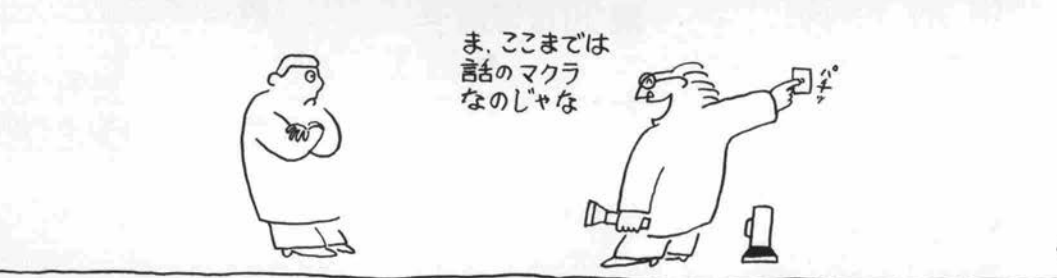 ま、ここまでは
話のマクラ
なのじゃな
パチッ